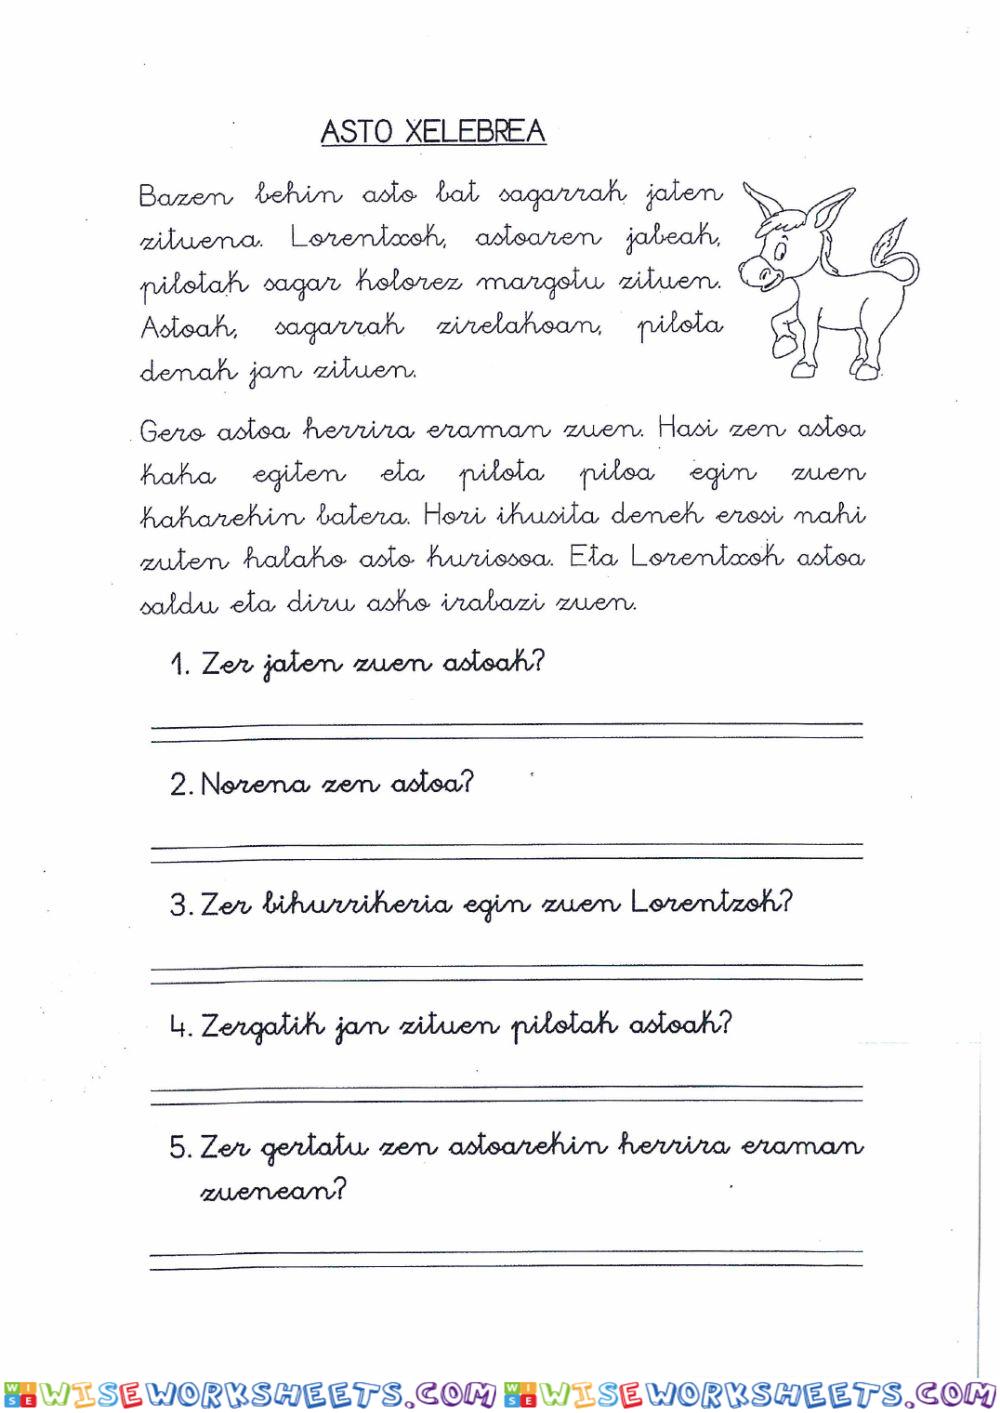 ASTO XELEBREA
Bazen behin asto bat sagarrak jaten
zituena. Lorentxok, astoaren jabeak,
pilotak sagar kolorez margotu zituen.
Astoak, sagarrak zirelakoan, pilota
denak jan zituen.
Gero astoa herrira eraman zuen. Hasi zen astoa
kaka egiten eta pilota piloa egin zuen
kakarekin batera. Hori ikusita denek erosi nahi
zuten halako asto kuriosoa. Eta Lorentxok astoa
saldu eta diru asko irabazi zuen.
1. Zer jaten zuen astoak?
2. Norena zen astoa?
3. Zer bihurrikeria egin zuen Lorentzok?
4. Zergatik jan zituen pilotak astoak?
5. Zer gertatu zen astoarekin herrira eraman
zuenean?
WISE WISEWORKSHEETS.COM WISE WISEWORKSHEETS.COM